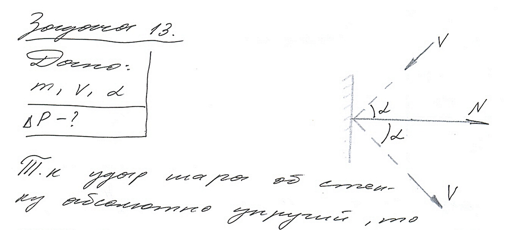 Задача 13.
Дано:
m, V, α
ΔP - ?
V
α
N
α
V
Т.к удар шара об стен-
ку абсолютно упругий, то